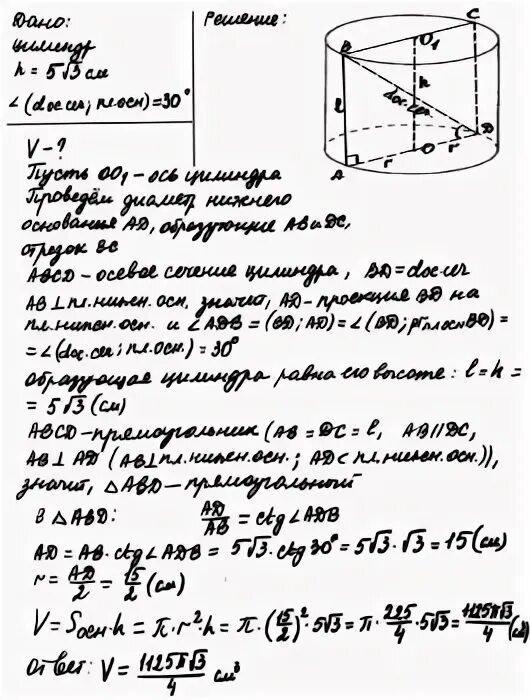 Дано:
Решение:
цилиндр
h = 5√3 см
∠(dос.сеч; пл.осн) = 30°
V - ?
Пусть OO₁ - ось цилиндра
Проведём диаметр нижнего
основания AD, образующие AB и DC,
отрезок BC
ABCD - осевое сечение цилиндра, BD = dос.сеч
AB ⊥ пл. нижн. осн. значит, AD - проекция BD на
пл. нижн. осн. и ∠ADB = ∠(BD; AD) = ∠(BD; пр пл.осн BD) =
= ∠(dос.сеч; пл.осн.) = 30°
образующая цилиндра равна его высоте: l = h =
= 5√3 (см)
ABCD - прямоугольник (AB = DC = l, AB || DC,
AB ⊥ AD (AB ⊥ пл. нижн. осн.; AD ⊂ пл. нижн. осн.)),
значит, △ABD - прямоугольный
В △ABD: AD/AB = ctg∠ADB
AD = AB · ctg∠ADB = 5√3 · ctg30° = 5√3 · √3 = 15 (см)
r = AD/2 = 15/2 (см)
V = Sосн · h = π · r² · h = π · (15/2)² · 5√3 = π · 225/4 · 5√3 = 1125π√3/4 (см)
Ответ: V = 1125π√3/4 см³
B
C
O₁
h
l
dос.сеч.
A
r
O
r
D